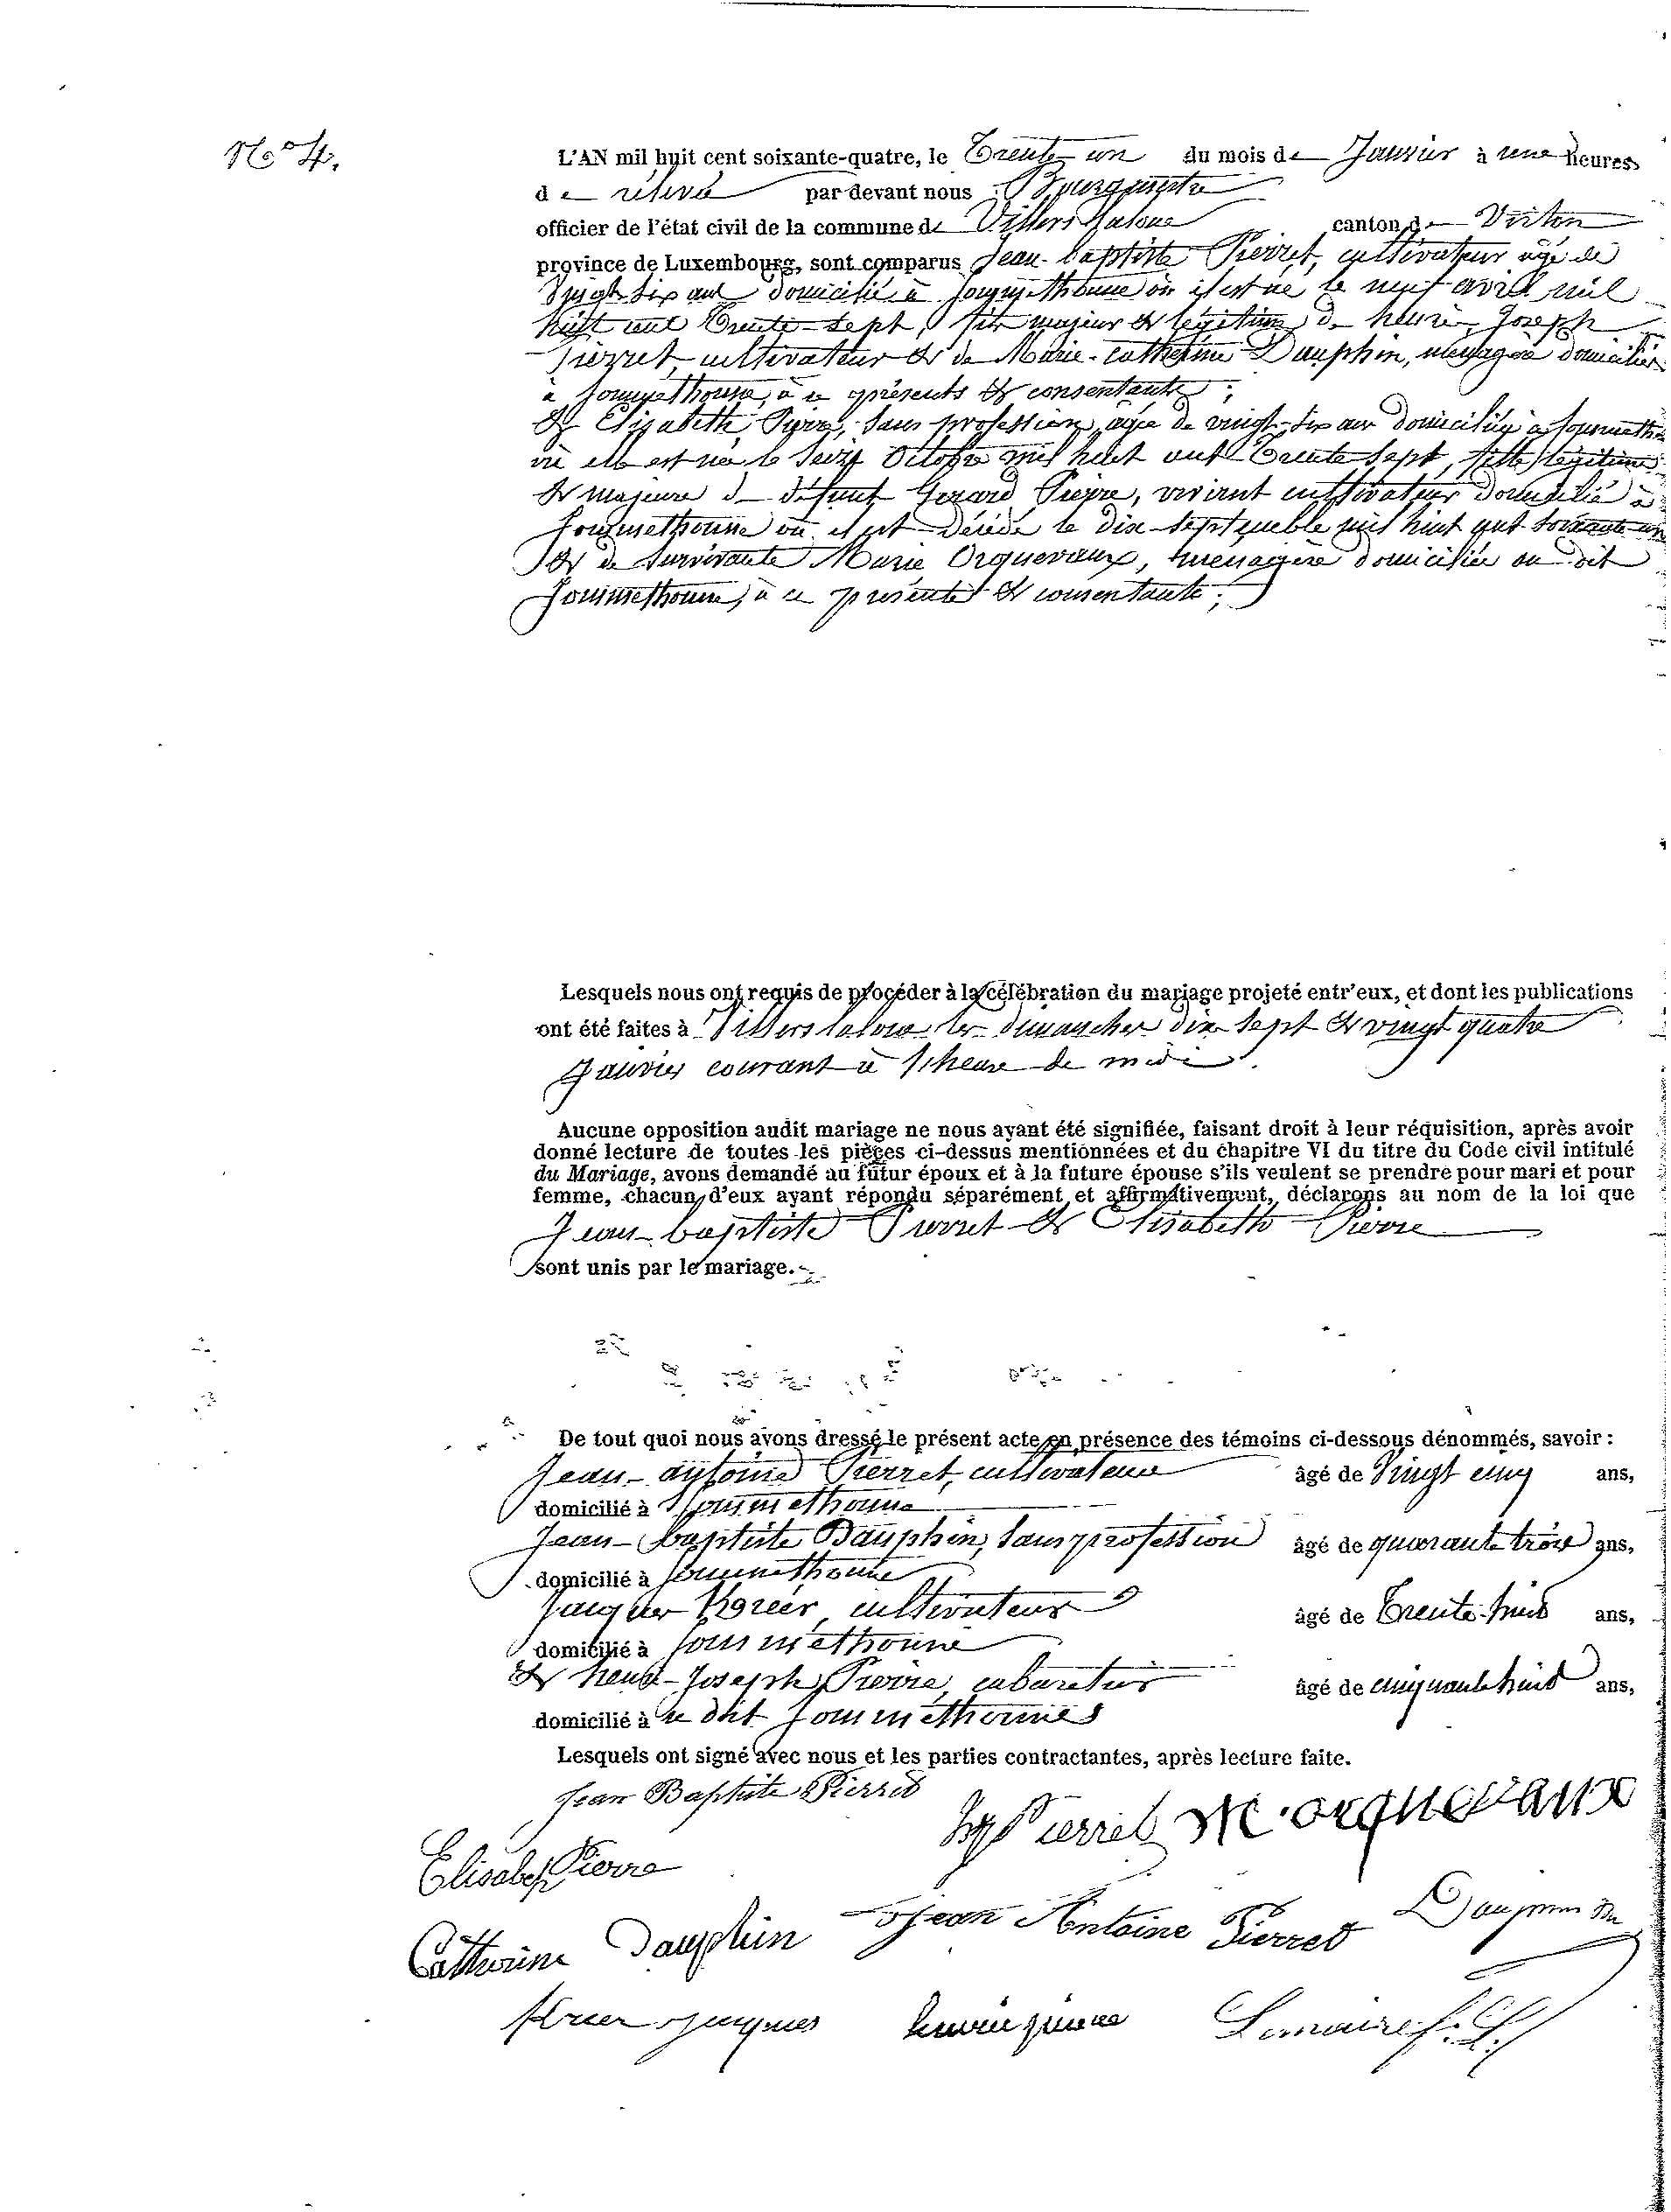 N° 4.
L'AN mil huit cent soixante-quatre, le Trente un du mois de Janvier à une heures
de relevée par devant nous Bourgmestre
officier de l'état civil de la commune de Villers laloue canton de Virton
province de Luxembourg, sont comparus Jean-baptiste Pierret, cultivateur agé de
Vingt six ans domicilié à Sommethonne où il est né le neuf avril mil
huit cent Trente-sept, fils majeur & légitime de henri-Joseph
Pierret, cultivateur & de Marie-catherine Dauphin, ménagère domiciliés
à Sommethonne, à ce présents & consentants ;
& Elisabeth Pierre, sans profession, agée de vingt-six ans domiciliée à Sommethonne
où elle est née le Seize Octobre mil huit cent Trente sept, fille légitime
& majeure de défunt Gerard Pierre, vivant cultivateur domicilié à
Sommethonne où il est décédé le dix-sept mil huit cent soixante-un
& de survivante Marie Orquevaux, ménagère domiciliée au dit
Sommethonne, à ce présente & consentante ;
Lesquels nous ont requis de procéder à la célébration du mariage projeté entr'eux, et dont les publications
ont été faites à Villers laloue les dimanches dix sept & vingt quatre
Janvier courant à 1 heure de midi.
Aucune opposition audit mariage ne nous ayant été signifiée, faisant droit à leur réquisition, après avoir
donné lecture de toutes les pièces ci-dessus mentionnées et du chapitre VI du titre du Code civil intitulé
du Mariage, avons demandé au futur époux et à la future épouse s'ils veulent se prendre pour mari et pour
femme, chacun d'eux ayant répondu séparément et affirmativement, déclarons au nom de la loi que
Jean-baptiste Pierret & Elisabeth Pierre
sont unis par le mariage.
De tout quoi nous avons dressé le présent acte en présence des témoins ci-dessous dénommés, savoir :
Jean-antoine Pierret, cultivateur âgé de Vingt cinq ans,
domicilié à Sommethonne
Jean-baptiste Dauphin, sans profession âgé de quarante trois ans,
domicilié à Sommethonne
Jacques cultivateur âgé de Trente-huit ans,
domicilié à Sommethonne
& henri-Joseph Pierre, cabaretier âgé de cinquante huit ans,
domicilié à ce dit Sommethonne
Lesquels ont signé avec nous et les parties contractantes, après lecture faite.
Jean Baptiste Pierret
Pierret M. orquevaux
Elisabeth Pierre
Catherine Dauphin Jean Antoine Pierret Dauphin
Jacques henri pierre Lemaire